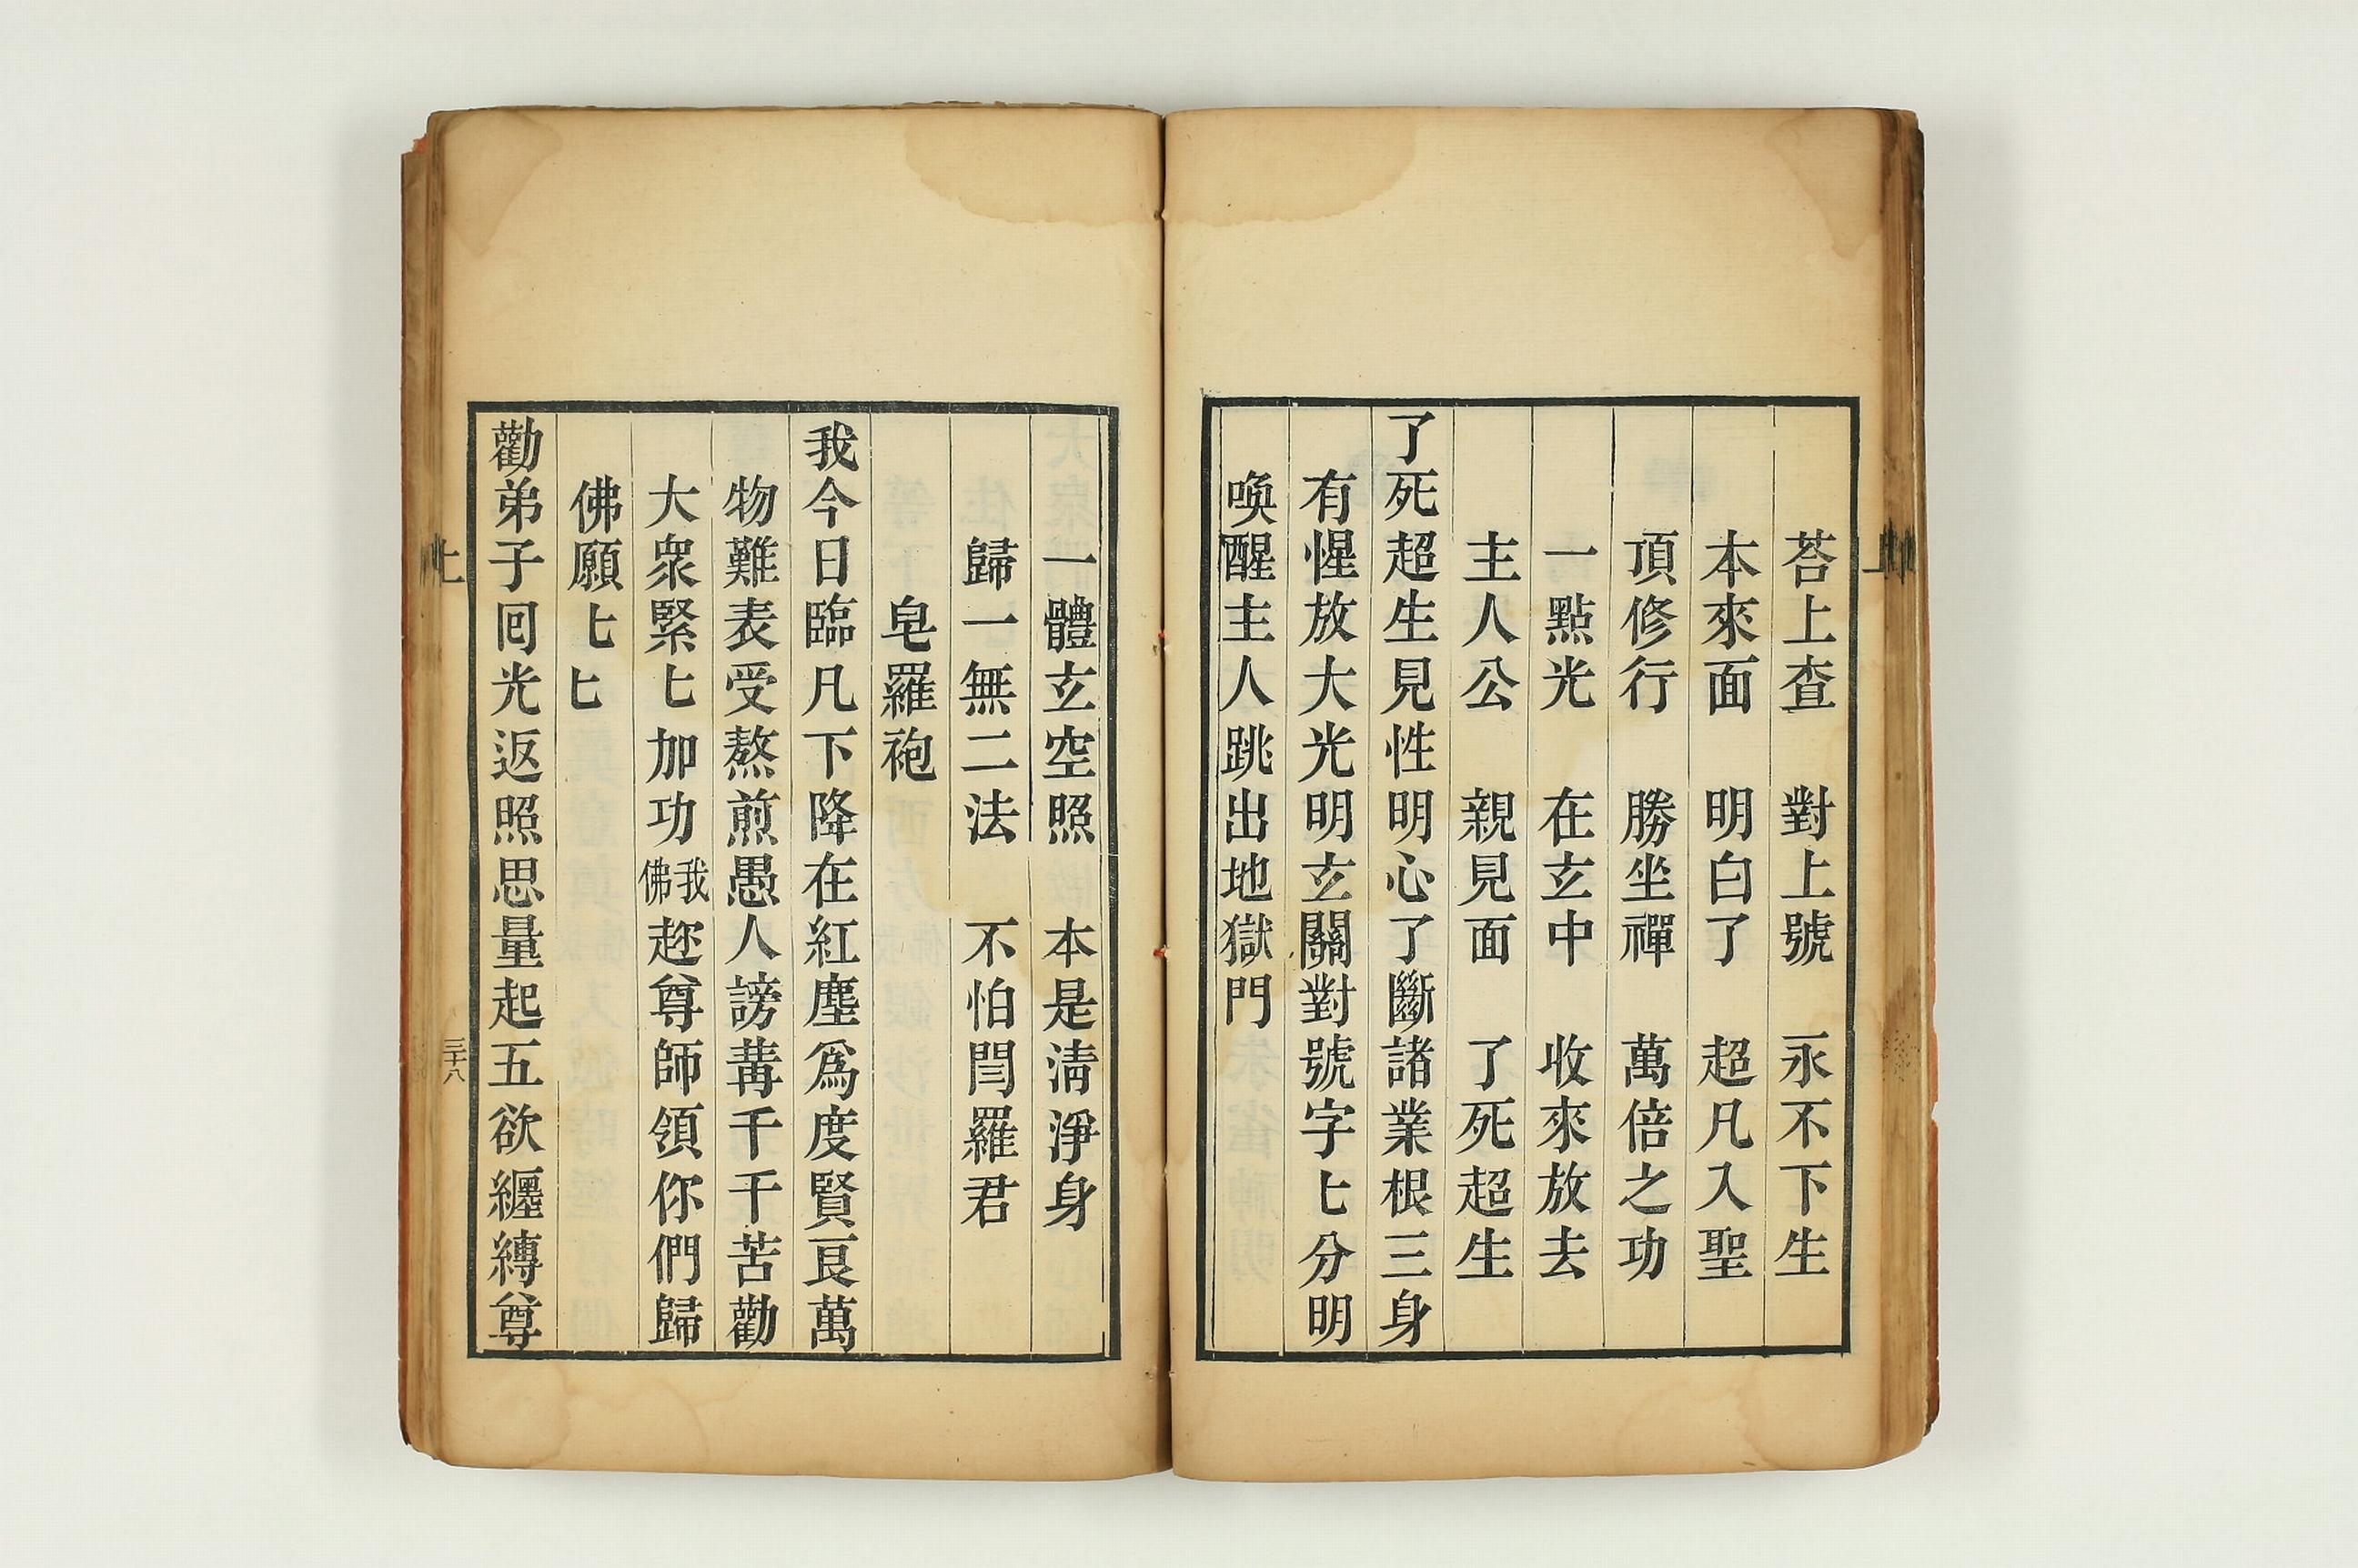 荅上查　對上號　永不下生
本來面　明白了　超凡入聖
頂修行　勝坐禪　萬倍之功
一點光　在玄中　收來放去
主人公　親見面　了死超生
了死超生見性明心了斷諸業根三身
有惺放大光明玄關對號字匕分明
喚醒主人跳出地獄門
一體玄空照　本是淸淨身
歸一無二法　不怕閆羅君
皂羅袍
我今日臨凡下降在紅塵爲度賢良萬
物難表受熬煎愚人謗茍千千苦勸
大衆緊匕加功我佛趂尊師領你們歸
佛願匕匕
勸弟子囘光返照思量起五欲纒縛尊
上
三十八